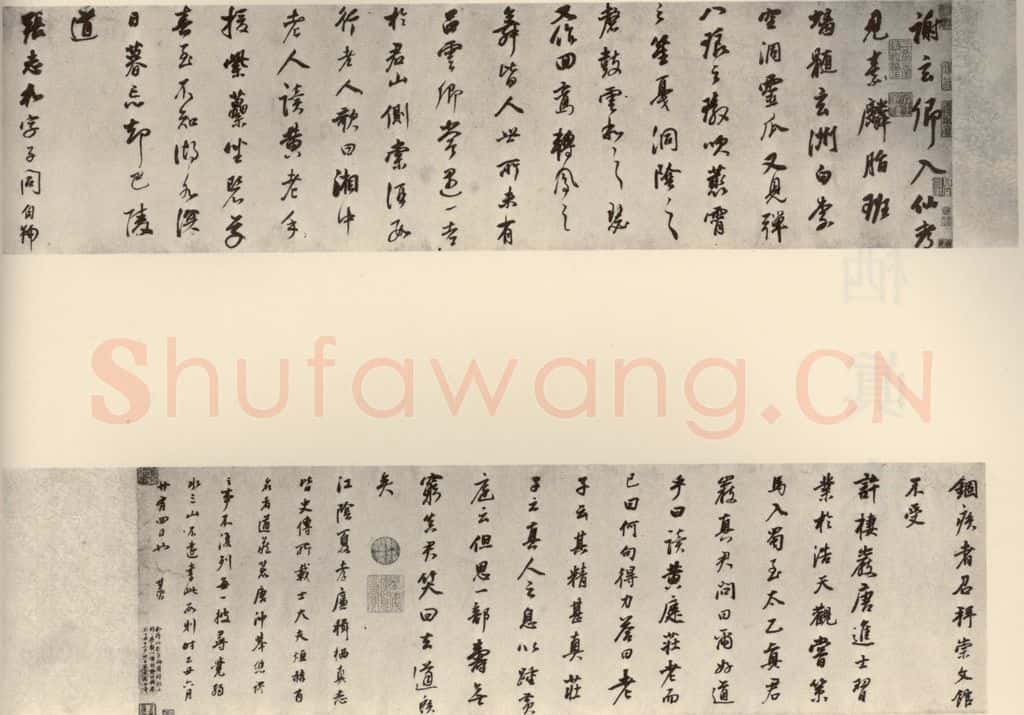 謝雲卿入仙考
見素麟脂班
螭髓玄洲白柰
空洞靈瓜又見彈
八琅之璈吹蕙霄
之笙戛洞陰之
磬鼓雲和之瑟
又作回鸞轉鳳之
舞皆人世所未有
呂雲卿嘗遇一老
於君山側索酒數
行老人歌曰湘中
老人讀黃老手
援紫藟坐碧草
春至不知湖水深
日暮忘却巴陵
道
張志和字子同自稱
Shufawang.CN
錮疾者召拜崇文館
不受
許棲巖唐進士習
業於浩天觀嘗策
馬入蜀至太乙真君
巖真君問曰爾好道
乎曰讀黃庭莊老而
已曰何句得力答曰老
子云其精甚真莊
子云真人之息以踵黃
庭云但思一部壽無
窮矣君笑曰去道
矣
江陰夏孝廉輯栖真志
皆史傳所載士大夫烜赫有
名者道藏沖舉
之事不復列每一披尋覺弱
水三山不遠書此 時 六月
廿有四日也